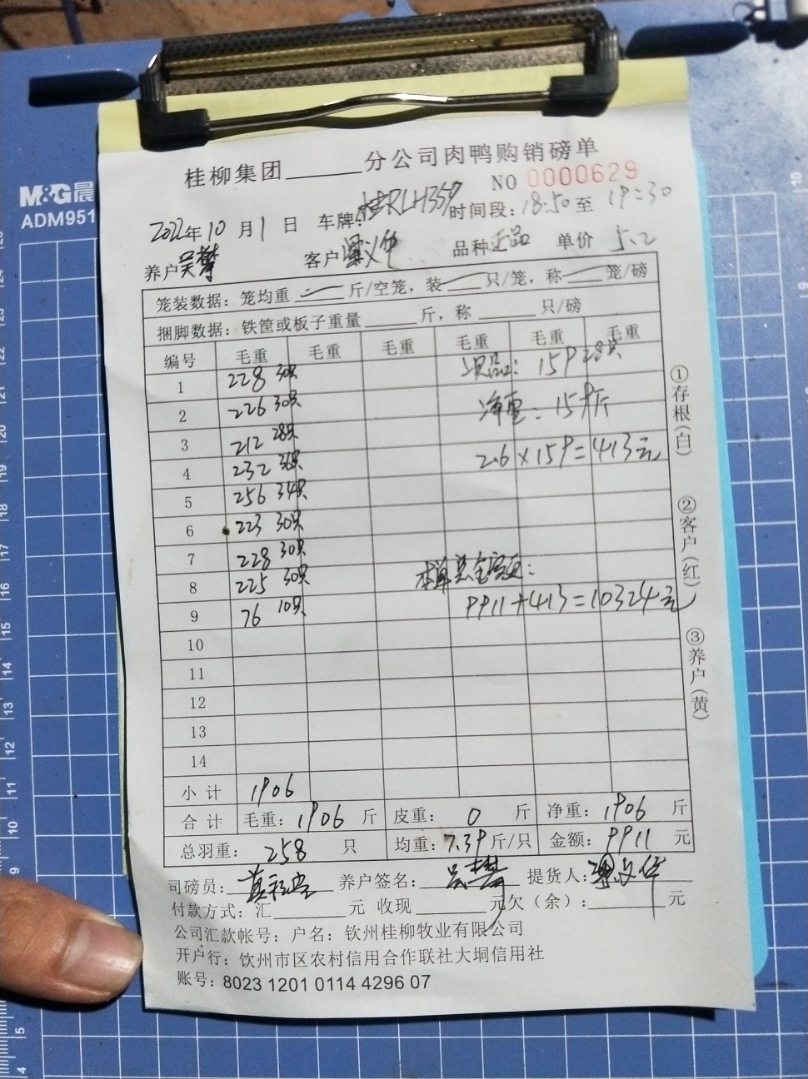 M&G 晨
ADM951
桂柳集团______分公司肉鸭购销磅单
NO 0000629
2022年10月1日 车牌:桂RLH359 时间段:18:50至19:30
养户吴攀 客户梁义华 品种正品 单价5.2
笼装数据:笼均重 斤/空笼,装 只/笼,称 笼/磅
捆脚数据:铁筐或板子重量____斤,称____只/磅
编号 毛重 毛重 毛重 毛重 毛重 毛重
1 228 30只 次品:159 28只
2 226 30只 净重:159斤
3 212 28只 2.6×159=413元
4 232 36只
5 256 34只
6 223 30只
7 228 30只
8 225 30只 本单总金额:
9 76 10只 9911+413=10324元
10
11
12
13
14
小计 1906
合计 毛重:1906斤 皮重:0斤 净重:1906斤
总羽重:258只 均重:7.39斤/只 金额:9911元
司磅员: 养户签名:吴攀 提货人:梁义华
付款方式:汇______元 收现______元欠(余):______元
公司汇款帐号:户名:钦州桂柳牧业有限公司
开户行:钦州市区农村信用合作联社大垌信用社
账号:8023 1201 0114 4296 07
①存根(白)
②客户(红)
③养户(黄)